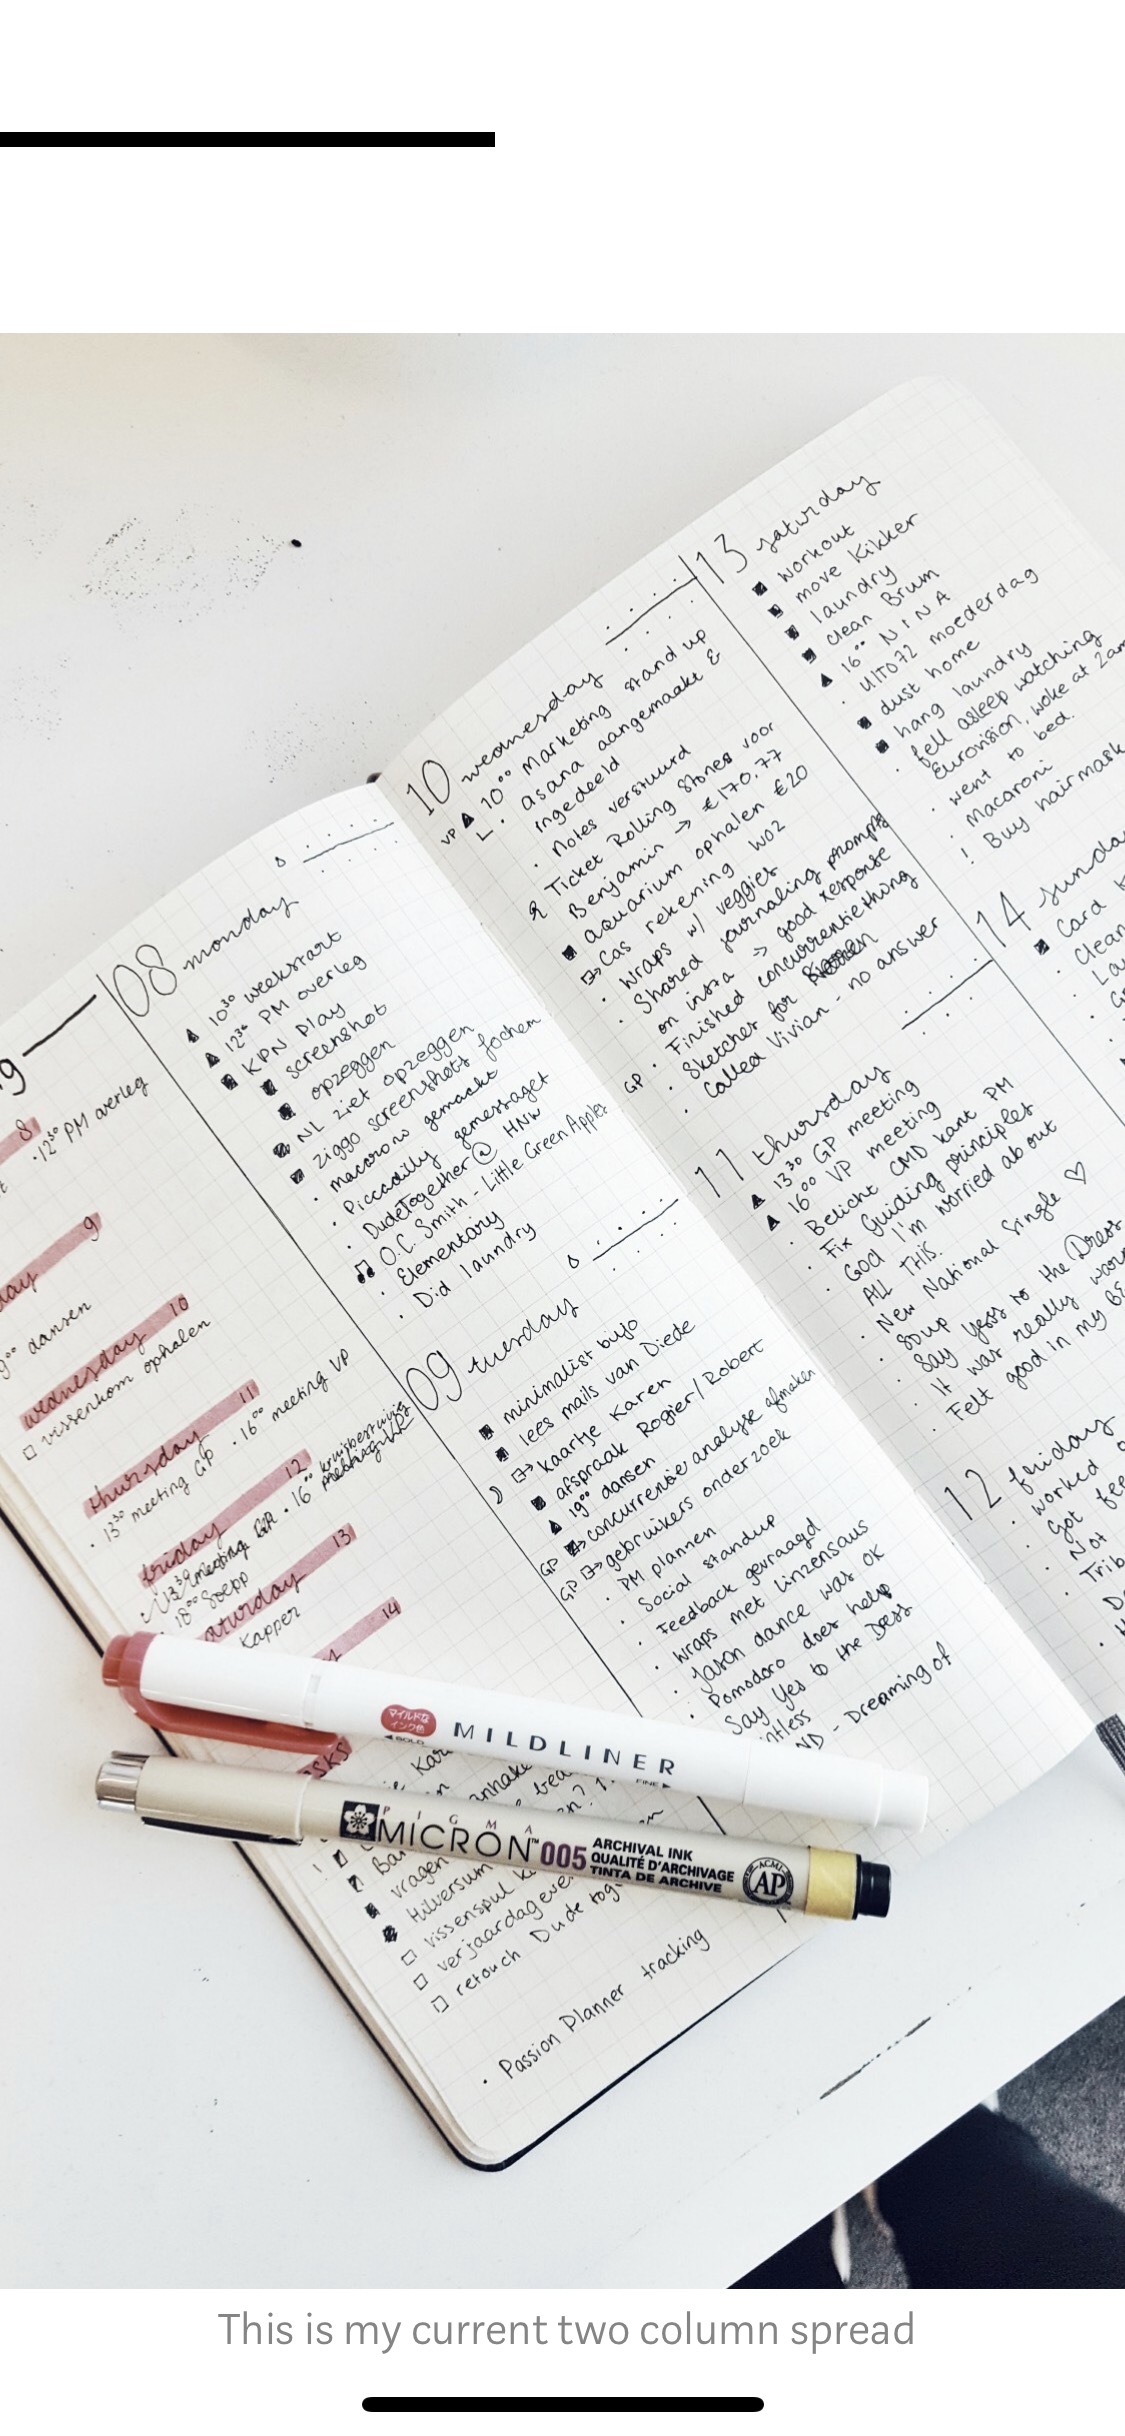 8
12³⁰ PM overleg
9
day
9⁰⁰ dansen
wednesday 10
vissenkom ophalen
thursday 11
13³⁰ meeting GP · 16⁰⁰ meeting VP
friday 12
18⁰⁰ Soepp
saturday 13
kapper
14
vragen
Hilversum
vissenspul
retouch Dude tog
Passion Planner tracking
08 monday
10³⁰ weekstart
12³⁰ PM overleg
KPN Play
screenshot
opzeggen
NL ziet opzeggen
Ziggo screenshots Jochem
macaroni gemaakt
Piccadilly gemessaget
DudeTogether @ HNW
O.C. Smith - Little Green Apples
Elementary
Did laundry
09 tuesday
minimalist bujo
lees mails van Diede
kaartje Karen
afspraak Rogier/Robert
19⁰⁰ dansen
GP concurrentie analyse afmaken
GP gebruikers onderzoek
PM plannen
Social standup
Feedback gevraagd
wraps met linzensaus
Jason dance was OK
Pomodoro does help
Say Yes to the Dress
ntless
ND - Dreaming of
10 wednesday
VP 10⁰⁰ Marketing stand up
asana aangemaakt &
ingedeeld
Notes verstuurd
Ticket Rolling Stones voor
Benjamin → €170,77
aquarium ophalen €20
Cas rekening WO2
Wraps w/ veggies
Shared journaling prompts
on insta → good response
GP Finished concurrentiething
Sketcher for
Called Vivian - no answer
11 thursday
13³⁰ GP meeting
16⁰⁰ VP meeting
Belicht CMD kant PM
Fix Guiding principles
God I'm worried about
ALL THIS.
New National Single ♡
Soup
Say Yess to the Dress
It was really warm
Felt good in my
12 friday
worked
Got
Not
Trib
13 saturday
workout
move Kikker
laundry
clean Brum
16⁰⁰ NINA
UITO72 moederdag
dust home
hang laundry
fell asleep watching
Eurovision, woke at 2am
went to bed.
Macaroni
! Buy hairmask
14 sunday
Card
Clean
MILDLINER
マイルドな
インク色
BOLD
FINE
PIGMA
MICRON™ 005
ARCHIVAL INK
QUALITÉ D'ARCHIVAGE
TINTA DE ARCHIVE
ACMI
AP
This is my current two column spread